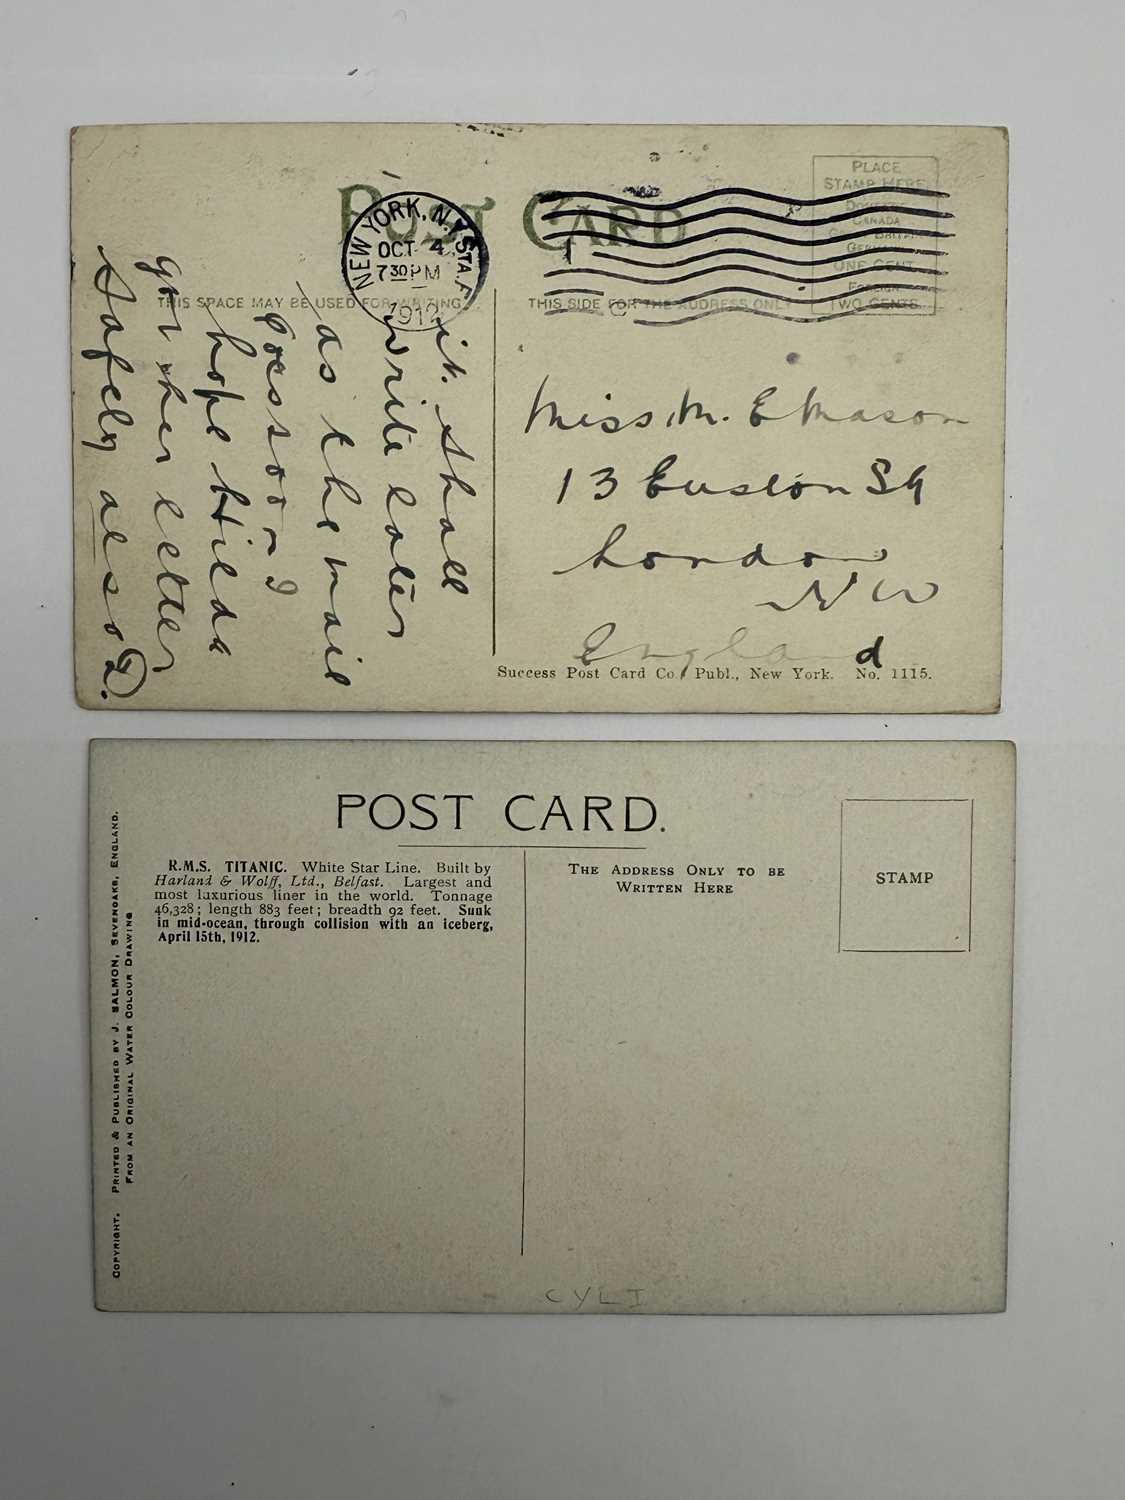 POST CARD
NEW YORK, N.Y. STA. F
OCT 4
7 30 PM
1912
PLACE
STAMP HERE
DOMESTIC
CANADA
GREAT BRITAIN
GERMANY
ONE CENT
FOREIGN
TWO CENTS
THIS SPACE MAY BE USED FOR WRITING
THIS SIDE FOR THE ADDRESS ONLY
it. shall
write later
as the mail
I
hope Hilda
got her letter
safely also D.
Miss. M. E Mason
13 Euston Sq
London
N W
England
Success Post Card Co. Publ., New York. No. 1115.
POST CARD.
R.M.S. TITANIC. White Star Line. Built by
Harland & Wolff, Ltd., Belfast. Largest and
most luxurious liner in the world. Tonnage
46,328; length 883 feet; breadth 92 feet. Sunk
in mid-ocean, through collision with an iceberg,
April 15th, 1912.
THE ADDRESS ONLY TO BE
WRITTEN HERE
STAMP
COPYRIGHT. PRINTED & PUBLISHED BY J. SALMON, SEVENOAKS, ENGLAND.
FROM AN ORIGINAL WATER COLOUR DRAWING
CYLI